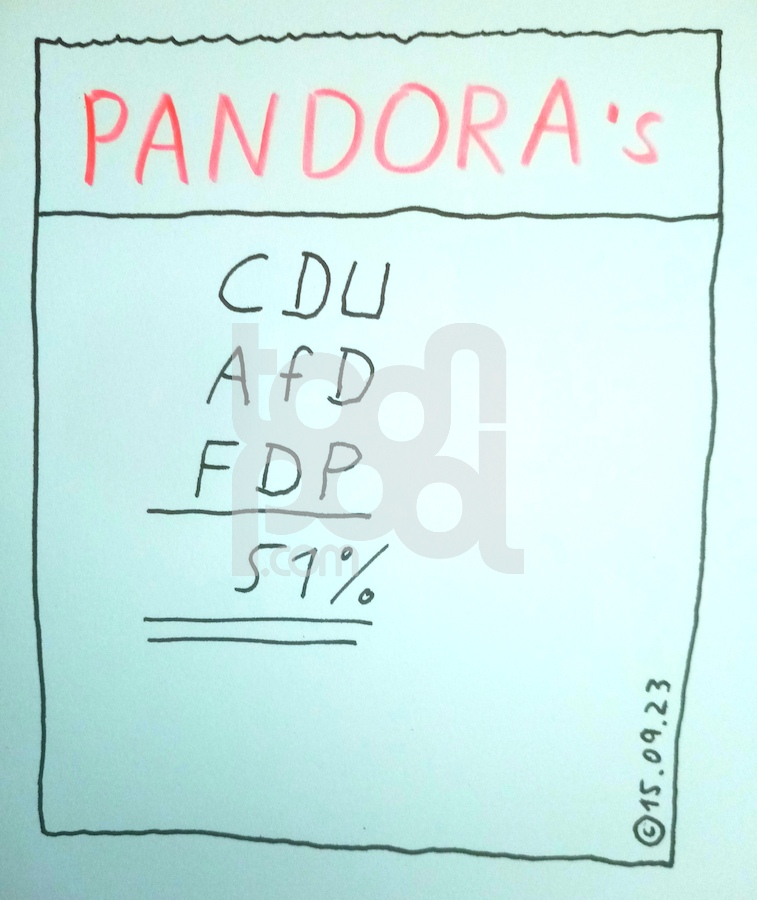 PANDORA's
CDU
AfD
FDP
51%
toon
pool
.com
©15.09.23